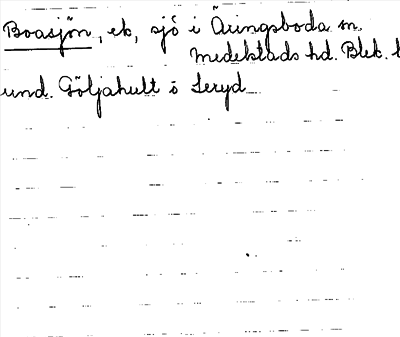 Boasjön, ek, sjö i Äringsboda sn.
Medelstads hd. Blek. l
und. Göljahult ö Seryd